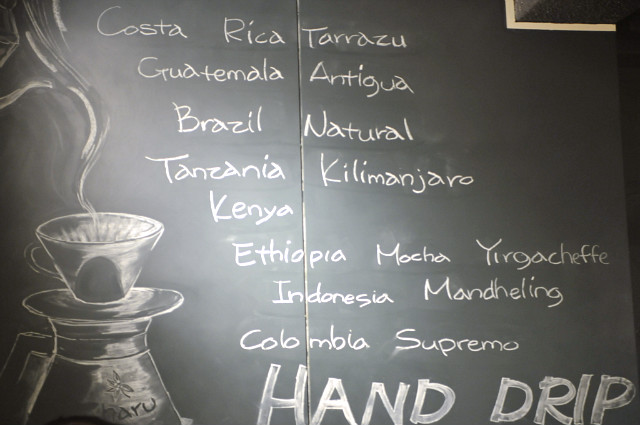 Costa Rica Tarrazu
Guatemala Antigua
Brazil Natural
Tanzania Kilimanjaro
Kenya
Ethiopia Mocha Yirgacheffe
Indonesia Mandheling
Colombia Supremo
HAND DRIP